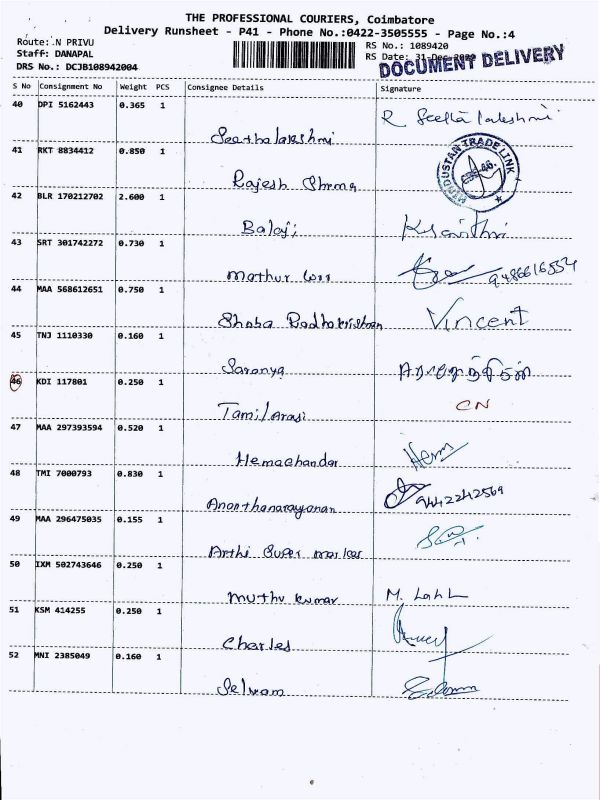 THE PROFESSIONAL COURIERS, Coimbatore
Delivery Runsheet - P41 - Phone No.:0422-3505555 - Page No.:4
Route: N PRIVU
Staff: DANAPAL
DRS No.: DCJB108942004
RS No.: 1089420
RS Date: 31-Dec
DOCUMENT DELIVERY
S No Consignment No Weight PCS Consignee Details Signature
40 DPI 5162443 0.365 1
Seethalakshmi R Seetha lakshmi
41 RKT 8834412 0.850 1
HINDUSTAN TRADE LINK
Rajesh Sharma
42 BLR 170212702 2.600 1
Balaji
43 SRT 301742272 0.730 1
Mathur 9486616554
44 MAA 568612651 0.750 1
Shoba Radhakrishnan Vincent
45 TNJ 1110330 0.160 1
Saranya
46 KDI 117801 0.250 1
Tamilarasi CN
47 MAA 297393594 0.520 1
Hemachandar Hem
48 TMI 7000793 0.830 1
Ananthanarayanan 9442242569
49 MAA 296475035 0.155 1
Arthi Super market
50 IXM 502743646 0.250 1
Muthu kumar M.
51 KSM 414255 0.250 1
Charles
52 MNI 2385049 0.160 1
Selvam